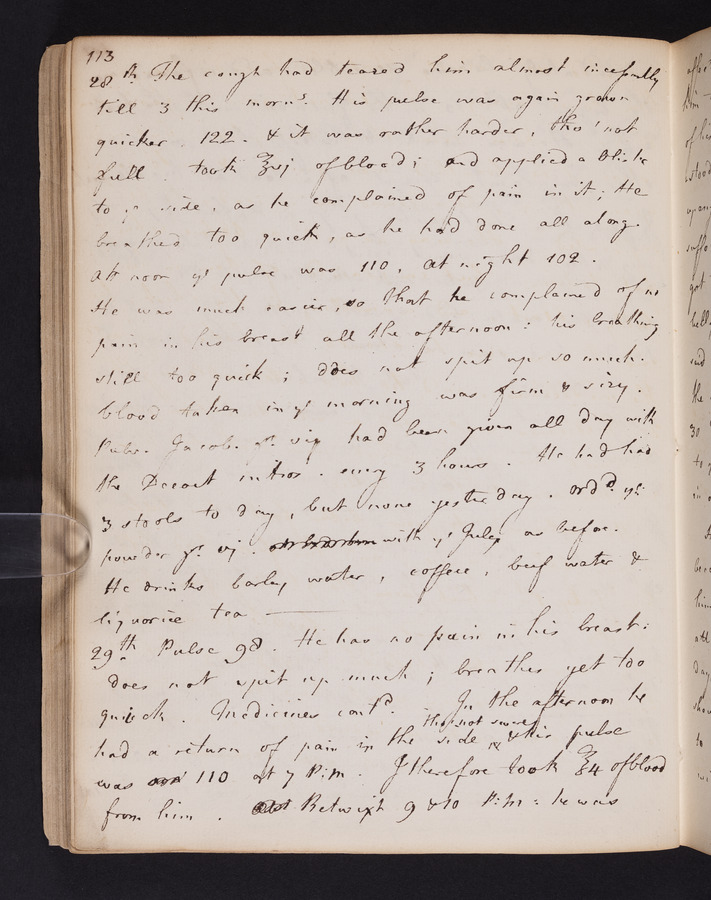 113
28th The cough had teased him almost incessantly
till 3 this morns. His pulse was again grown
quicker. 122. & it was rather harder, tho' not
full. took ℥vj of blood; and applied a Blister
to ye side, as he complained of pain in it; He
breathed too quick, as he had done all along.
At noon ye pulse was 110, at night 102.
He was much easier, so that he complained of no
pain in his breast all the afternoon: his breathing
still too quick; does not spit up so much.
blood taken in ye morning was firm & sizy.
Pulv. Jacob. gr. vij had been given all day with
the Decoct nitros. every 3 hours. He had had
3 stools to day, but none yesterday. ordd. ye
powder gr. vj. with ye Julep as before.
He drinks barley water, coffee, beef water &
liquorice tea
29th Pulse 98. He has no pain in his breast:
does not spit up much; breathes yet too
quick. Medicines contd. In the afternoon he
had a return of pain in the side tho' not severe & his pulse
was 110 at 7 P:M. I therefore took ℥4 of blood
from him. Betwixt 9 & 10 P:M: he was